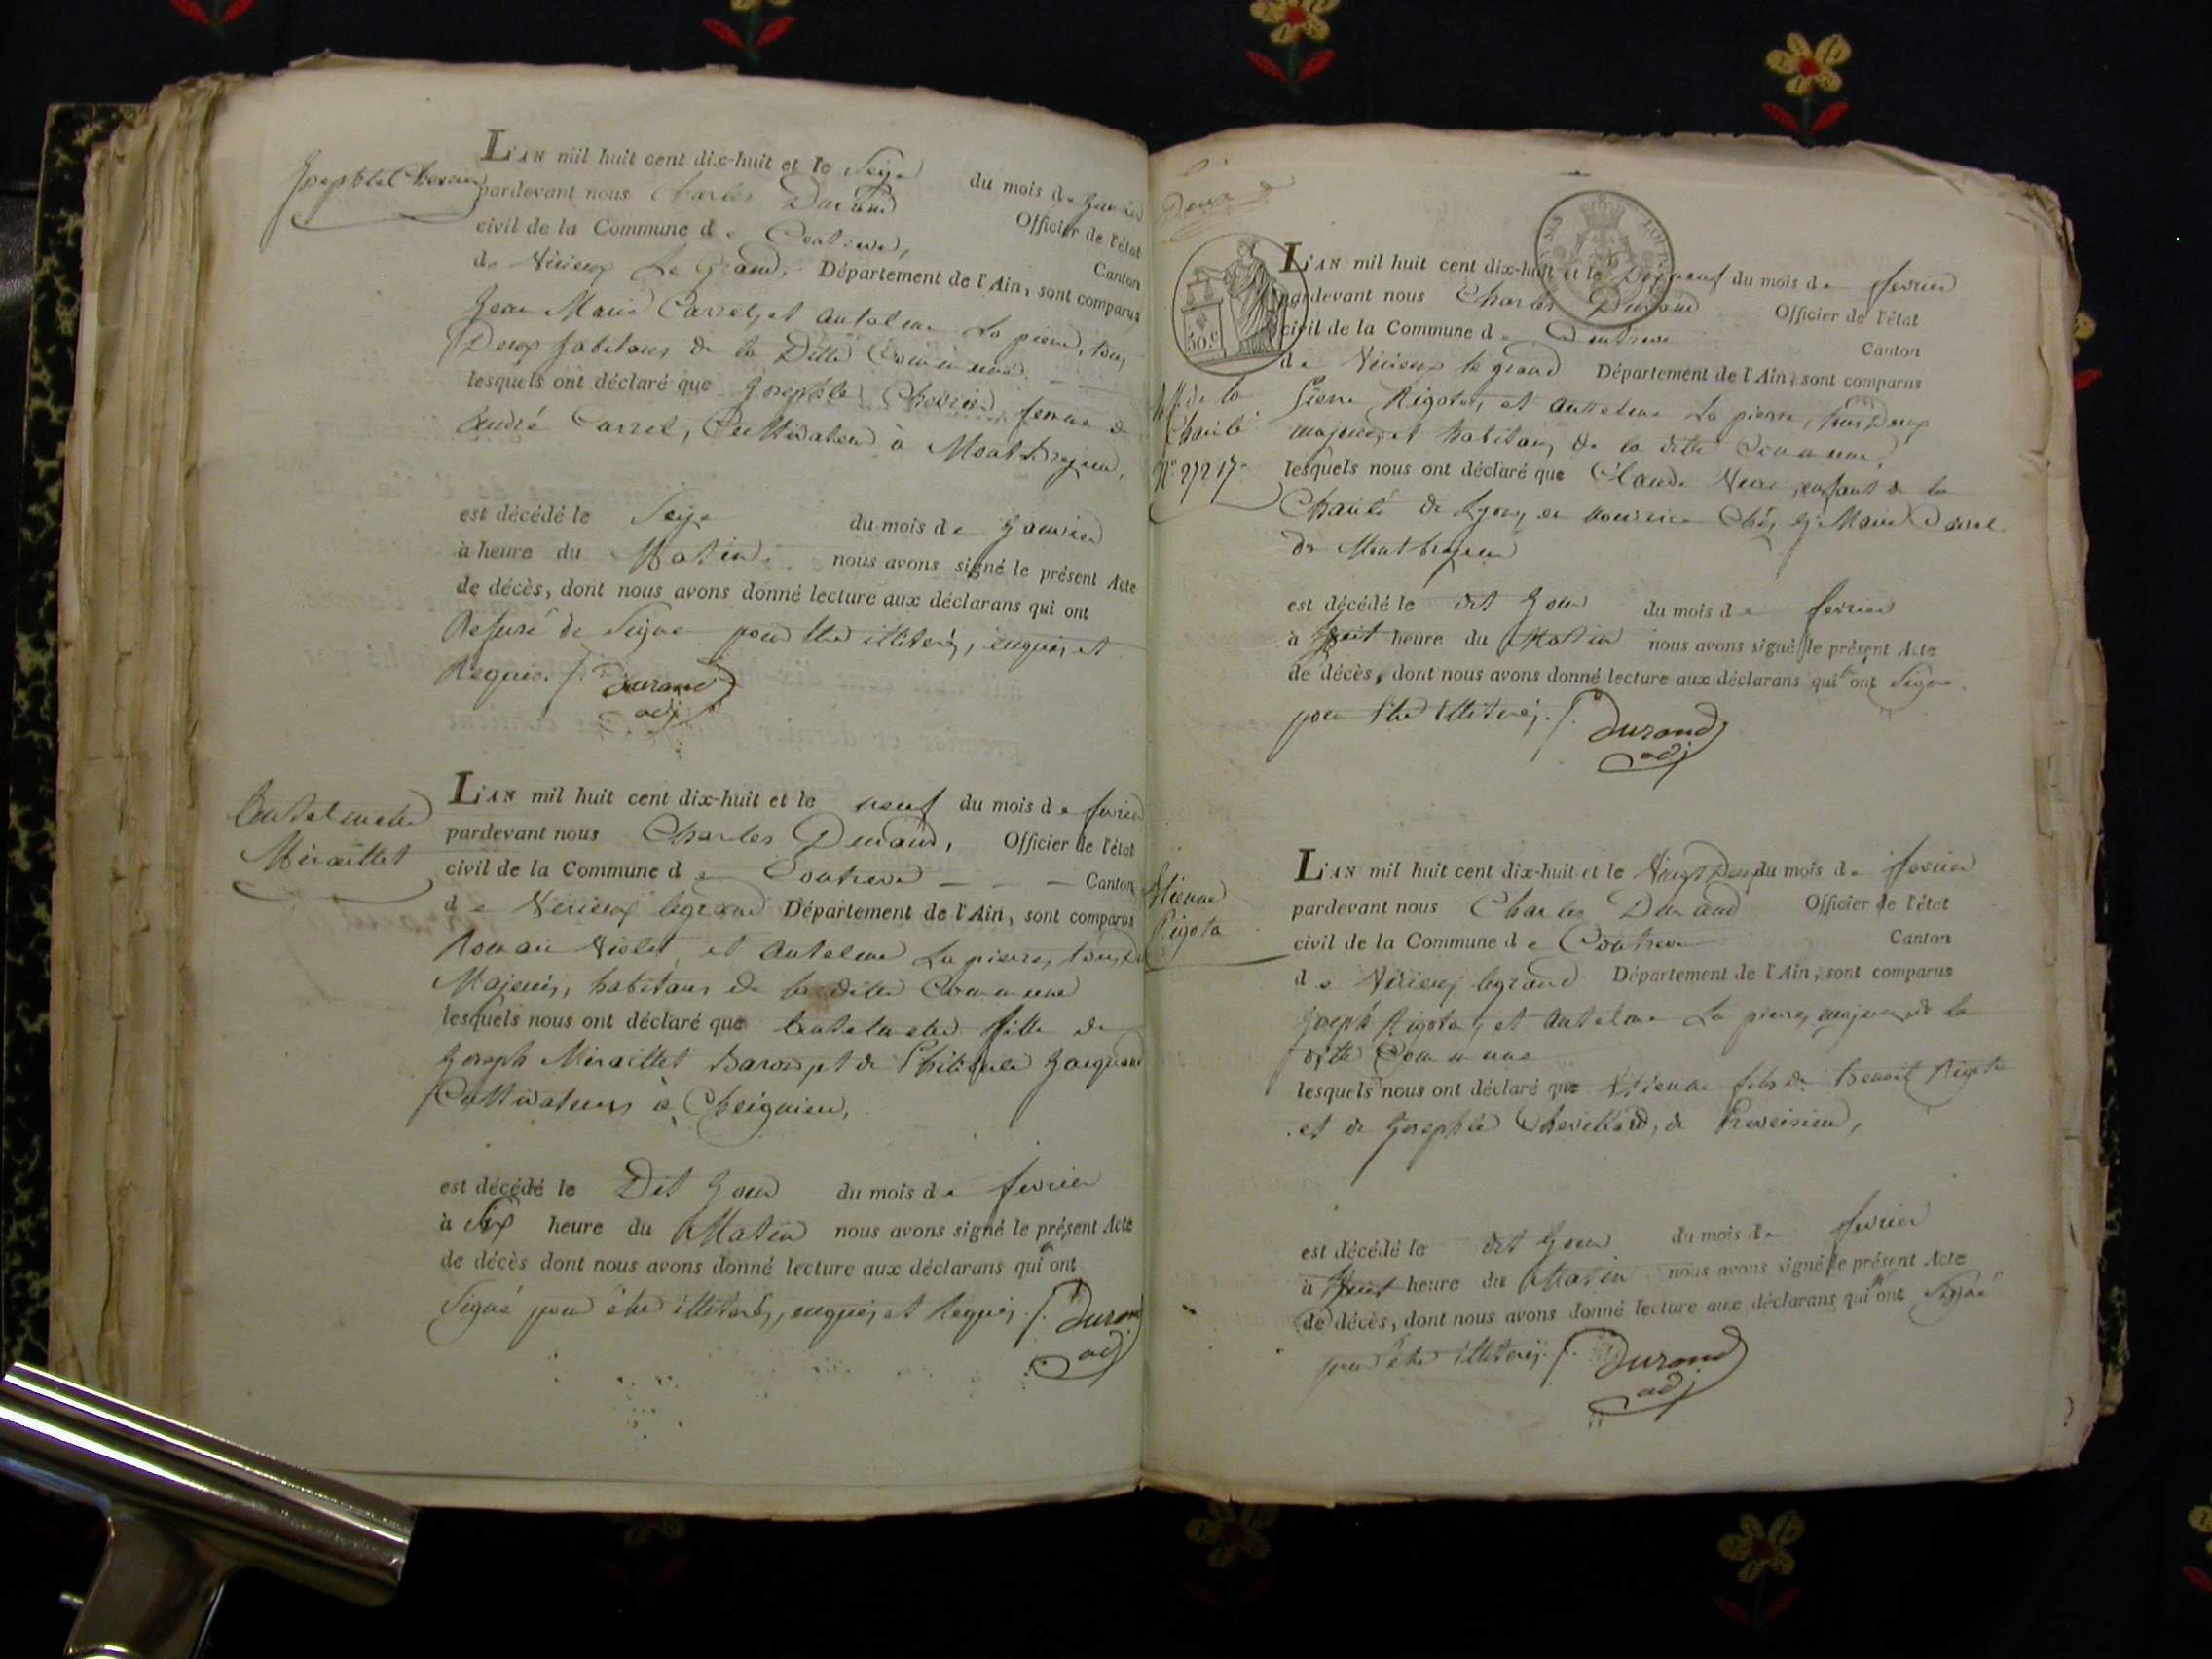 L'AN mil huit cent dix-huit et le Seize du mois de Janvier
Josephte Chevrier
pardevant nous Charles Durand Officier de l'état
civil de la Commune de Contrevo, Canton
de Virieux Le Grand, Département de l'Ain, sont comparus
Jean Marie Carrel, et Antelme La pierre, tous
Deux habitans de la Ditte Commune.
lesquels ont déclaré que Josephte Chevrier femme de
André Carrel, Cultivateur à Montbrezieu,
est décédé le Seize du mois de Janvier
à heure du Matin. nous avons signé le présent Acte
de décès, dont nous avons donné lecture aux déclarans qui ont
Refusé de Signer pour être illiterés, enquis et
Requis. Durand
adj
L'AN mil huit cent dix-huit et le neuf du mois de fevrier
Miraillet
pardevant nous Charles Durand, Officier de l'état
civil de la Commune de Contrevo Canton
de Virieux legrand Département de l'Ain, sont comparus
Romain Violet, et Antelme La pierre, tous
Majeurs, habitans de la ditte Commune
lesquels nous ont déclaré que fille de
Joseph Miraillet et de
Cultivateurs à Cheignieu,
est décédé le Dit Jour du mois de fevrier
à Six heure du Matin nous avons signé le présent Acte
de décès dont nous avons donné lecture aux déclarans qui n'ont
Signé pour être illiterés, enquis et Requis. Durand
adj
Deux
50.C
L'AN mil huit cent dix-huit et le Dixneuf du mois de fevrier
pardevant nous Charles Durand Officier de l'état
civil de la Commune de Contrevo
Canton
de Virieux le grand Département de l'Ain, sont comparus
de la
Charité
N.° 27217
Pierre Rigotat, et Antelme La pierre, tous Deux
majeurs, et habitans de la ditte Commune,
lesquels nous ont déclaré que Claude enfant de la
Charité de Lyon, en nourrice Chez Marie Carrel
de Montbrezieu
est décédé le dit Jour du mois de fevrier
à huit heure du Matin nous avons signé le présent Acte
de décès, dont nous avons donné lecture aux déclarans qui n'ont Signé
pour être illiterés. Durand
adj
L'AN mil huit cent dix-huit et le Vingt Deux du mois de fevrier
Etienne
Rigota
pardevant nous Charles Durand Officier de l'état
civil de la Commune de Contrevo Canton
de Virieux legrand Département de l'Ain, sont comparus
Joseph Rigota, et Antelme La pierre, majeurs de la
ditte Commune
lesquels nous ont déclaré que Etienne fils de Benoit Rigota
et de Josephte Chevillard, de Preveisieu,
est décédé le dit Jour du mois de fevrier
à huit heure du Matin nous avons signé le présent Acte
de décès, dont nous avons donné lecture aux déclarans qui n'ont Signé
pour être illiterés. Durand
adj